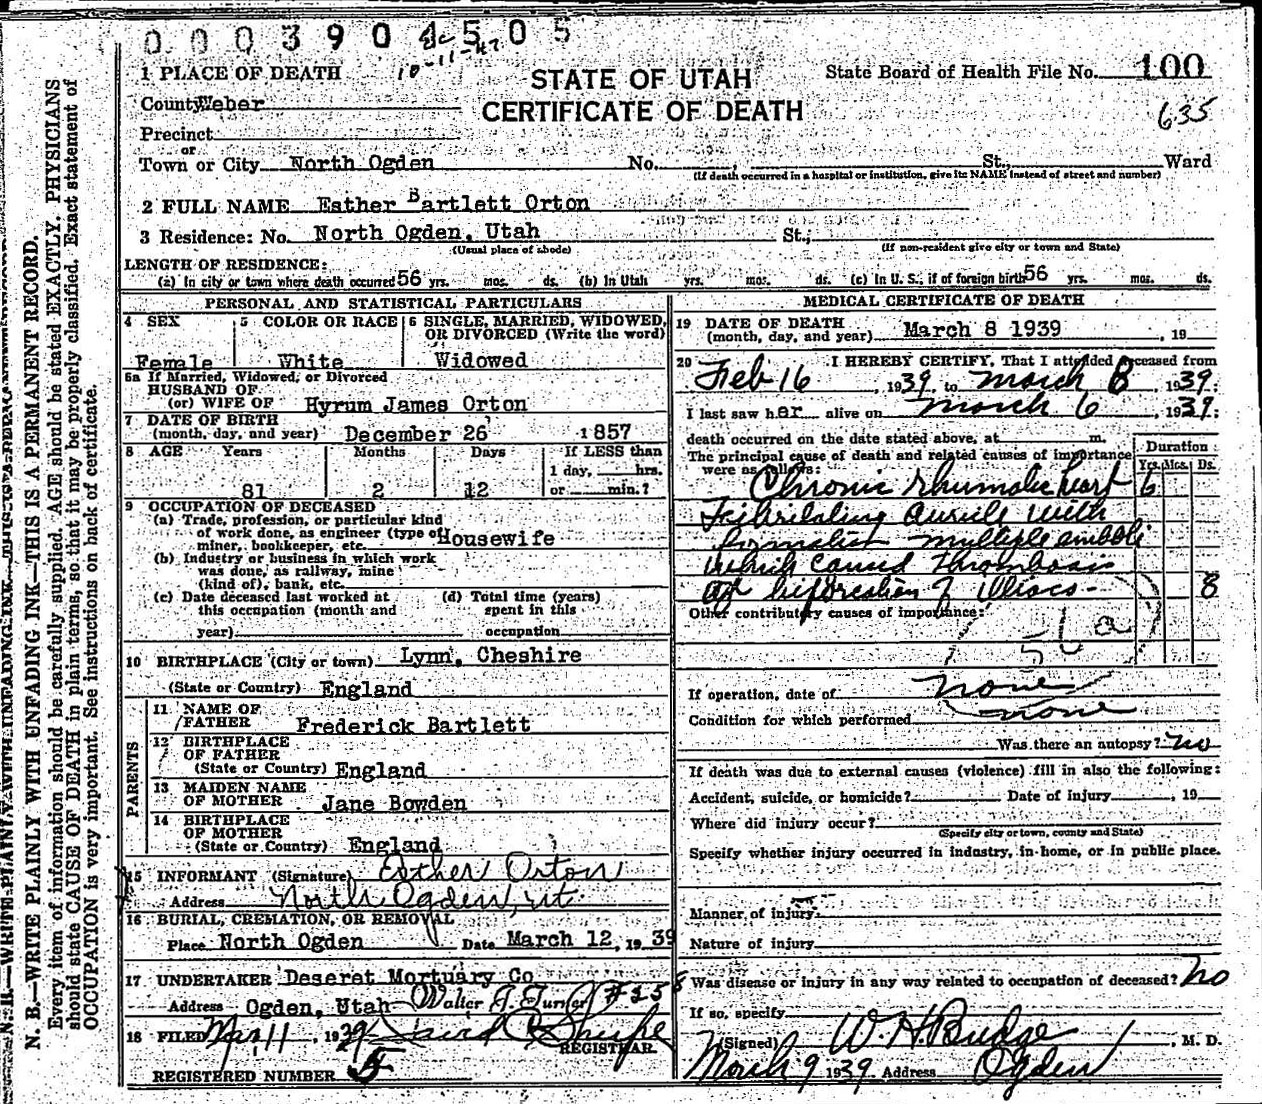 0003904505
10-11-47
1 PLACE OF DEATH
STATE OF UTAH
CERTIFICATE OF DEATH
State Board of Health File No. 100
635
County Weber
Precinct
or
Town or City North Ogden No. , St., Ward
(If death occurred in a hospital or institution, give its NAME instead of street and number)
2 FULL NAME Esther Bartlett Orton
3 Residence: No. North Ogden, Utah St.,
(Usual place of abode) (If non-resident give city or town and State)
LENGTH OF RESIDENCE:
(a) In city or town where death occurred 56 yrs. mos. ds. (b) In Utah yrs. mos. ds. (c) In U. S., if of foreign birth 56 yrs. mos. ds.
PERSONAL AND STATISTICAL PARTICULARS
4 SEX 5 COLOR OR RACE 6 SINGLE, MARRIED, WIDOWED,
OR DIVORCED (Write the word)
Female White Widowed
6a If Married, Widowed, or Divorced
HUSBAND OF
(or) WIFE OF Hyrum James Orton
7 DATE OF BIRTH
(month, day, and year) December 26 1857
8 AGE Years Months Days If LESS than
1 day, hrs.
81 2 12 or min.?
9 OCCUPATION OF DECEASED
(a) Trade, profession, or particular kind
of work done, as engineer (type of Housewife
miner, bookkeeper, etc.
(b) Industry or business in which work
was done, as railway, mine
(kind of), bank, etc.
(c) Date deceased last worked at (d) Total time (years)
this occupation (month and spent in this
year) occupation
10 BIRTHPLACE (City or town) Lynn, Cheshire
(State or Country) England
PARENTS
11 NAME OF
FATHER Frederick Bartlett
12 BIRTHPLACE
OF FATHER
(State or Country) England
13 MAIDEN NAME
OF MOTHER Jane Bowden
14 BIRTHPLACE
OF MOTHER
(State or Country) England
15 INFORMANT (Signature) Esther Orton
Address North Ogden, Ut.
16 BURIAL, CREMATION, OR REMOVAL
Place North Ogden Date March 12, 19 39
17 UNDERTAKER Deseret Mortuary Co
Address Ogden, Utah Walter J. Turner #25
18 FILED Mar 11, 1939
REGISTRAR
REGISTERED NUMBER 5
MEDICAL CERTIFICATE OF DEATH
19 DATE OF DEATH
(month, day, and year) March 8 1939 , 19
20 I HEREBY CERTIFY, That I attended deceased from
Feb 16, 1939, to March 8, 1939:
I last saw her alive on March 6, 1939:
death occurred on the date stated above, at m.
The principal cause of death and related causes of importance
were as follows:
Duration
Yrs. Mos. Ds.
Chronic rhumatic heart 6
Fibrilating auricle with
formation multiple emboli
which caused thrombosis
at biforcation of Iliacs- 8
Other contributory causes of importance:
56a
If operation, date of none
Condition for which performed none
Was there an autopsy? no
If death was due to external causes (violence) fill in also the following:
Accident, suicide, or homicide? Date of injury , 19
Where did injury occur?
(Specify city or town, county and State)
Specify whether injury occurred in industry, in home, or in public place.
Manner of injury
Nature of injury
Was disease or injury in any way related to occupation of deceased? No
If so, specify
(Signed) W. H. Budge , M. D.
March 9 1939. Address Ogden
N. B.—WRITE PLAINLY WITH UNFADING INK—THIS IS A PERMANENT RECORD.
Every item of information should be carefully supplied. AGE should be stated EXACTLY. PHYSICIANS
should state CAUSE OF DEATH in plain terms, so that it may be properly classified. Exact statement of
OCCUPATION is very important. See instructions on back of certificate.